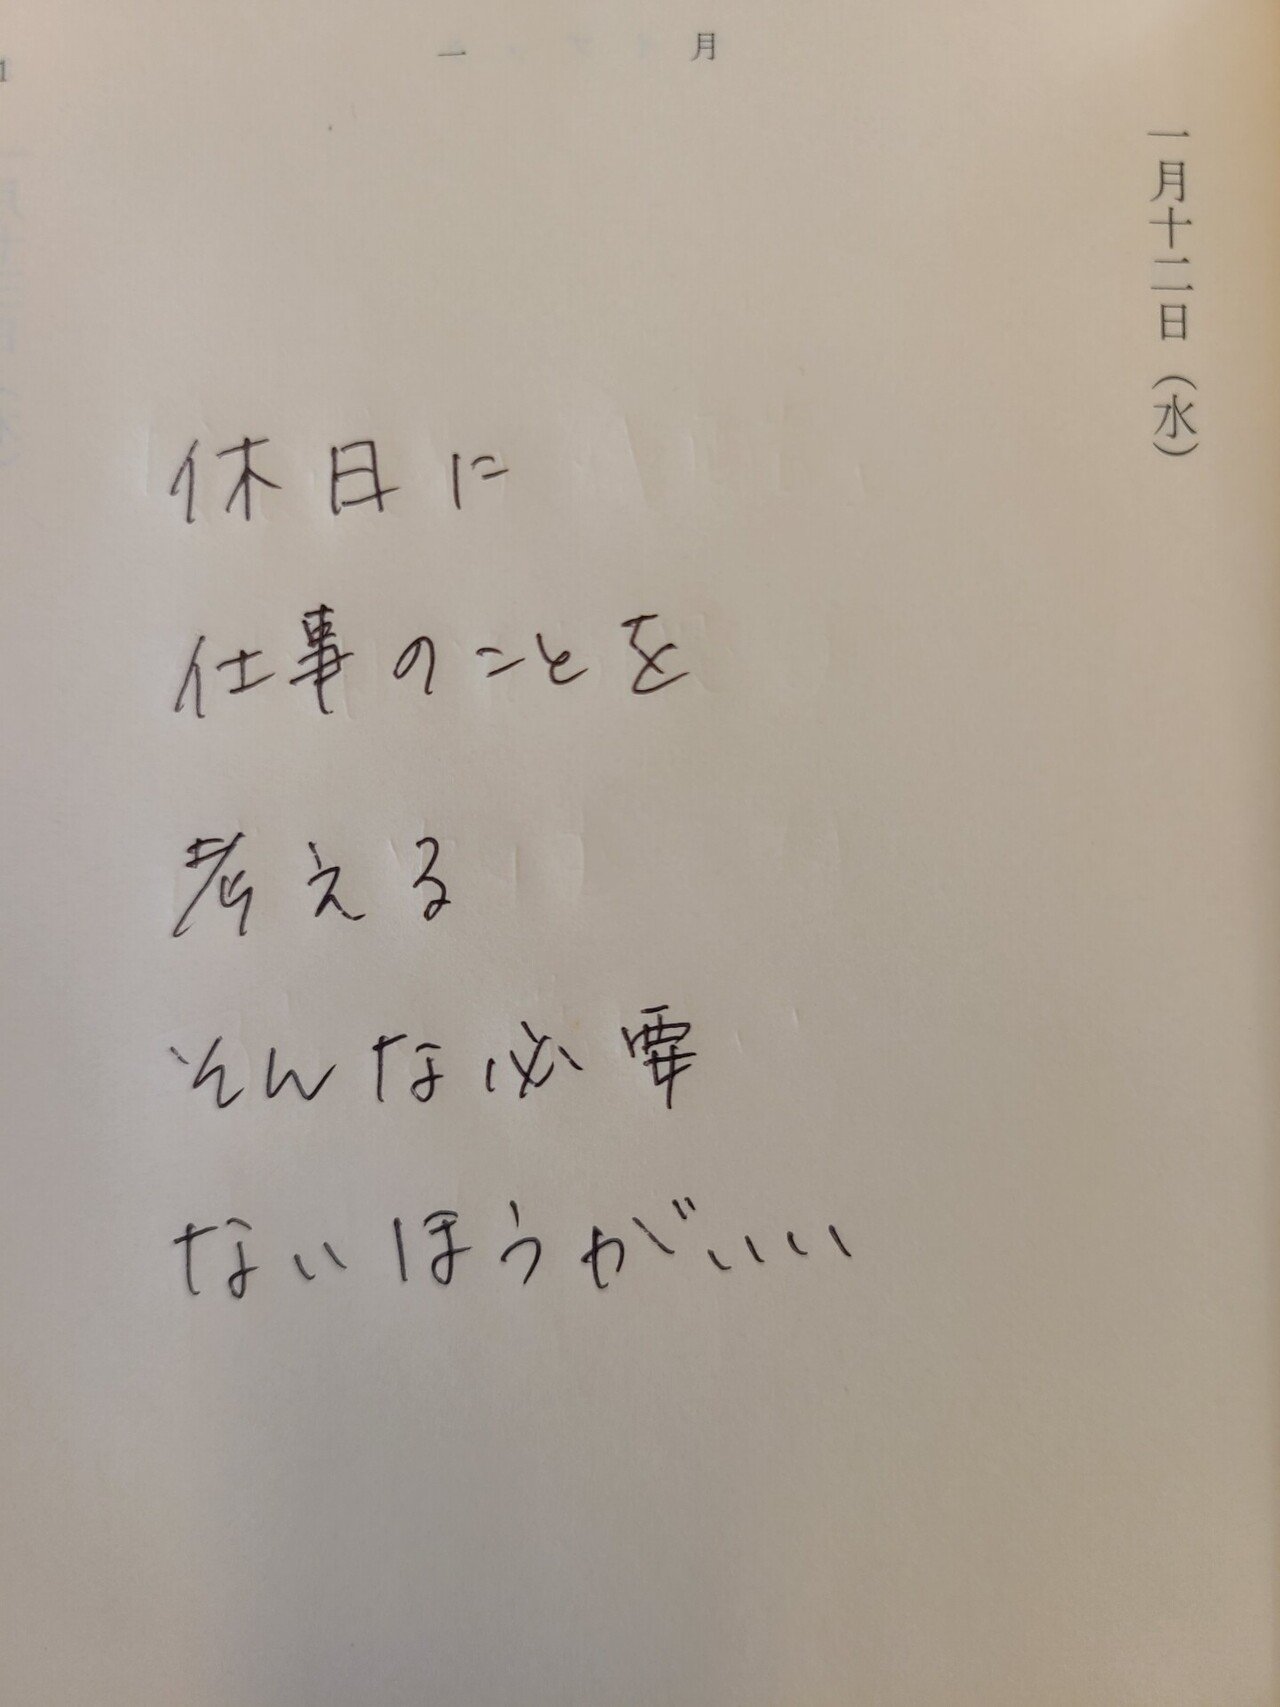 一月
一月十二日（水）
休日に
仕事のことを
考える
そんな必要
ないほうがいい